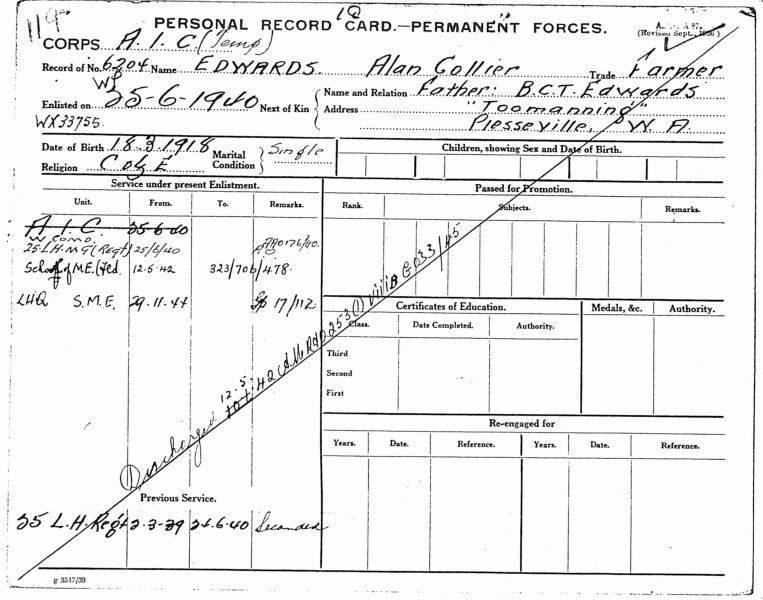 119
1Q
PERSONAL RECORD CARD.—PERMANENT FORCES.
(Revised Sept., 1936)
CORPS A.I.C. (Temp)
Record of No. 6204 Name EDWARDS. Alan Collier Trade Farmer
Enlisted on 25-6-1940 Next of Kin
Name and Relation Father: B.C.T. Edwards
Address "Toomanning"
Plesseville, W.A.
WX33755
Date of Birth 18.3.1918 Marital Condition Single
Religion C of E
Children, showing Sex and Date of Birth.
Service under present Enlistment.
Unit. From. To. Remarks.
A.I.C. 25-6-40
W Comd.
25 L.H.M.G (Regt) 25/6/40
School of M.E. (Fed. 12.5.42 323/706/478.
LHQ S.M.E. 29.11.44 17/112
Passed for Promotion.
Rank. Subjects. Remarks.
Certificates of Education.
Class. Date Completed. Authority.
Third
Second
First
Medals, &c. Authority.
Re-engaged for
Years. Date. Reference. Years. Date. Reference.
Discharged 12.5.42
Previous Service.
25 L.H. Regt 2-3-39 24.6.40 Seconded
g 3517/39